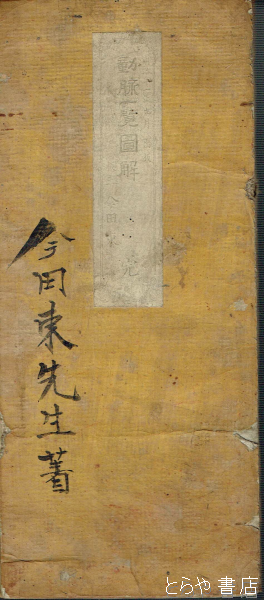 動脈一覧圖解
今田東先生著
とらや書店